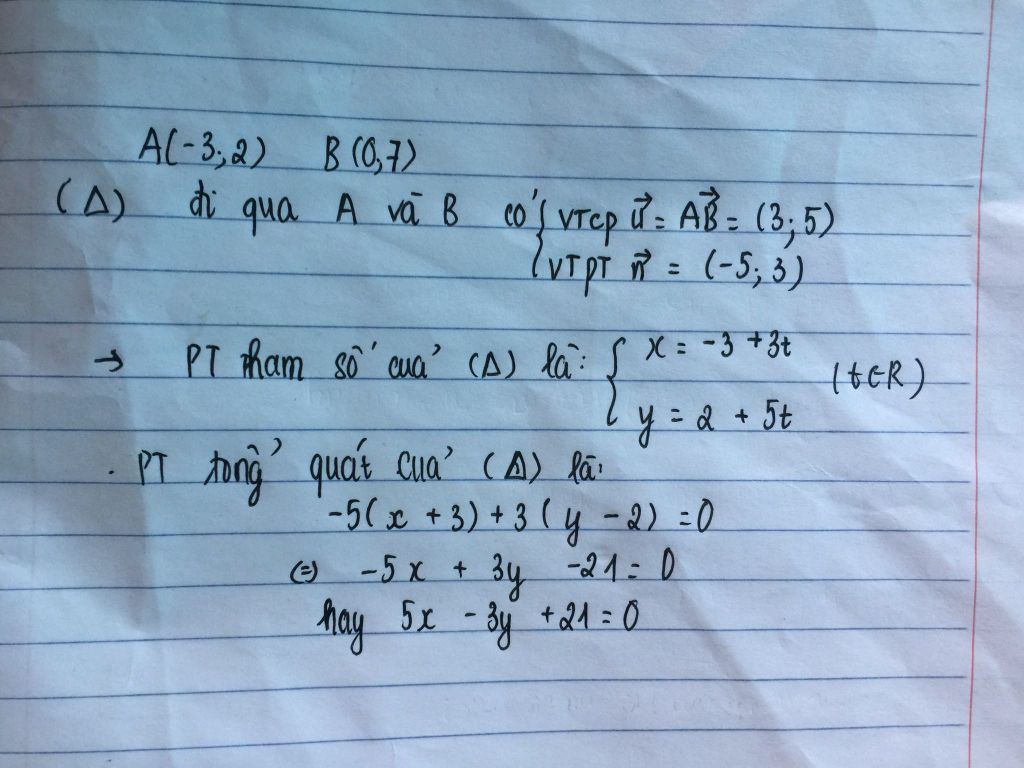 A(-3; 2) B(0; 7)
(Δ) đi qua A và B có { VTCP u⃗ = AB⃗ = (3; 5)
VTPT n⃗ = (-5; 3)
→ PT tham số của (Δ) là: { x = -3 + 3t
(t ∈ R)
y = 2 + 5t
. PT tổng quát của (Δ) là:
-5(x + 3) + 3(y - 2) = 0
⇔ -5x + 3y - 21 = 0
hay 5x - 3y + 21 = 0